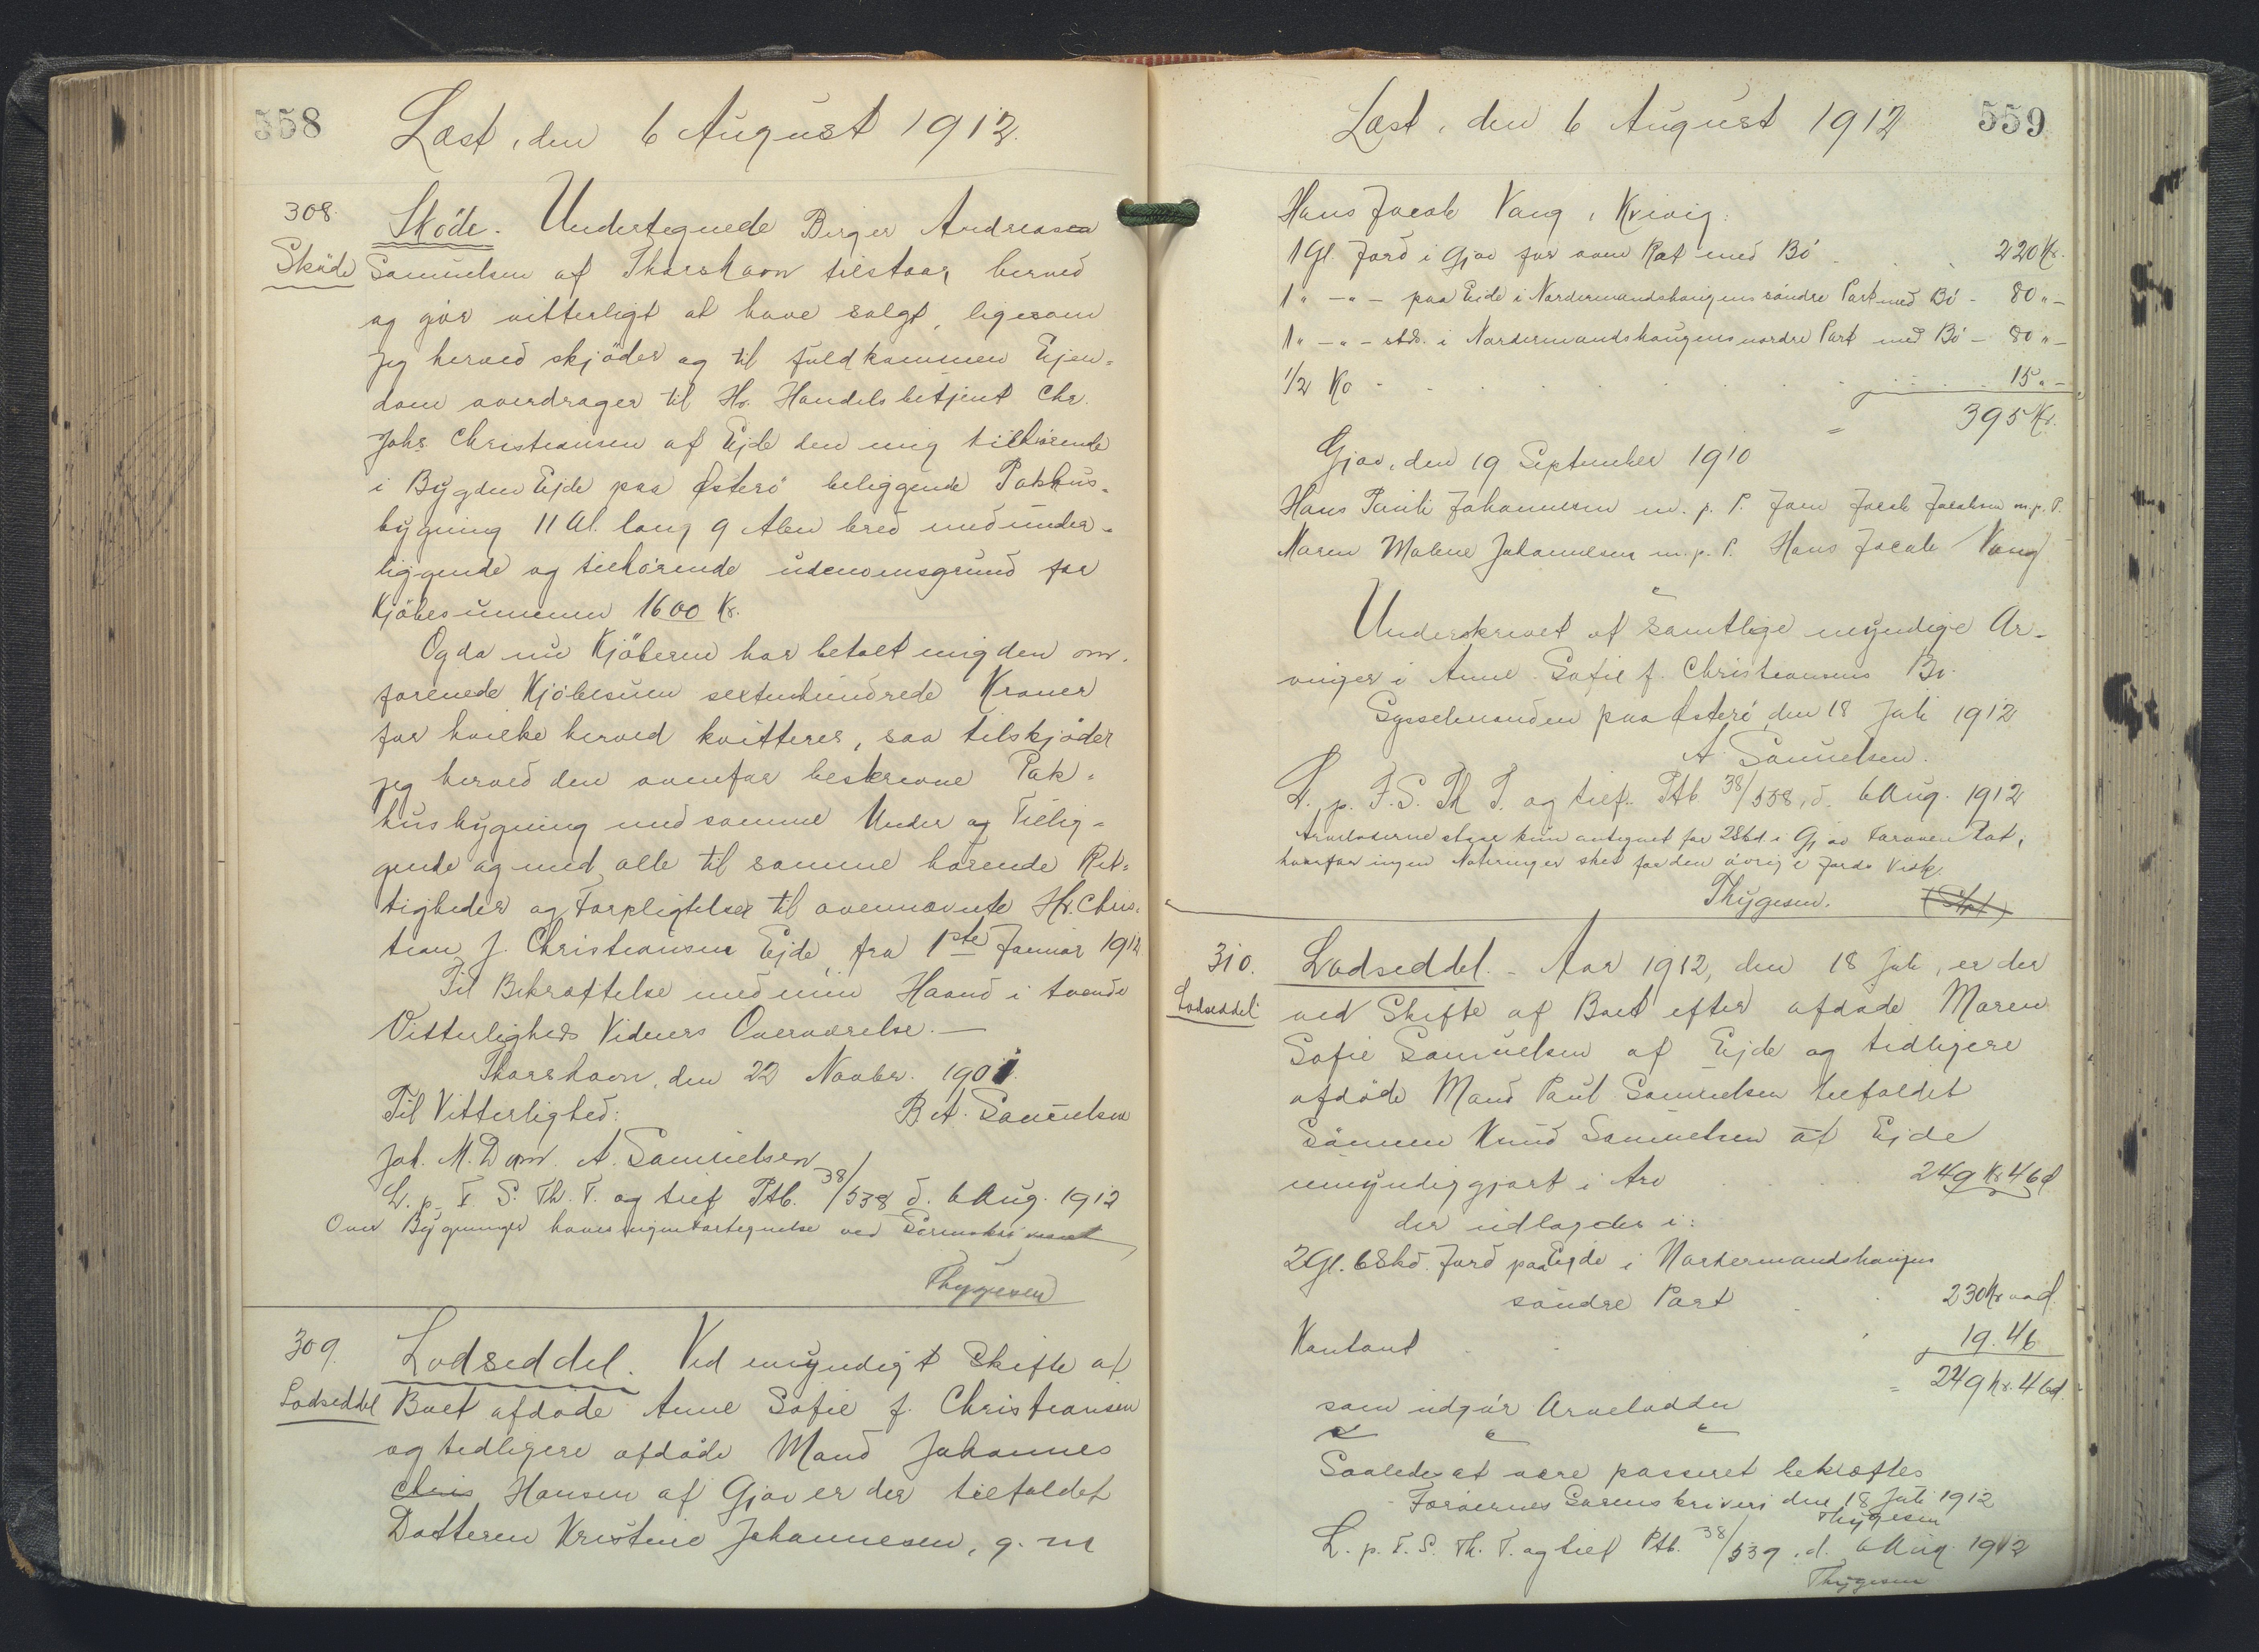 558
Læst, den 6 August 1912.
308.
Sköde
Sköde. Undertegnede Birger Andreasen
Samuelsen af Thorshavn tilstaar herved
og gör vitterligt at have solgt, ligesom
jeg herved skjöder og til fuldkommen Ejen=
dom overdrager til Hr. Handelsbetjent Chr.
Johs Christiansen af Ejde den mig tilhörende
i Bygden Ejde paa Österö beliggende Pakhus-
bygning 11 Al. lang 9 Alen bred med under-
liggende og tilhörende udenomsgrund for
Kjöbesummen 1600 Kr.
Og da nu Kjöberen har betalt mig den om-
forenede Kjöbesum sextenhundrede Kroner
for hvilke herved kvitteres, saa tilskjöder
jeg herved den ovenfor beskrevne Pak=
husbygning med samme Under og Tillig=
gende og med alle til samme hörende Ret=
tigheder og Forpligtelser til ovennævnte Hr. Chris=
tian J. Christiansen Ejde, fra 1ste Januar 1912
Til Bekræftelse med min Haand i tvende
Vitterligheds Vidners Overværelse. —
Thorshavn, den 22 Novbr. 1901.
Til Vitterlighed: B. A. Samuelsen
Joh. M. Dam. A. Samuelsen
L. p. F. S. Th. T. og tilf. Ptb. 38/538 d. 6 Aug. 1912
Over Bygninger haves ingen Fortegnelse ved
Thygesen
309.
Lodseddel
Lodseddel. Ved myndigt Skifte af
Boet afdøde Anne Sofie f. Christiansen
og tidligere afdøde Mand Johannes
Chris Hansen af Gjov er der tilfaldet
Datteren Kristine Johannesen, g. m
Læst, den 6 August 1912
559
Hans Jacob Vang, Kvivig:
1 Gl. Jord i Gjov for oven Rat med Bö . . 220 Kr.
1 " — " — paa Ejde i Nordermandshaugens söndre Part med Bö - 80 " -
1 " — " — stds. i Nordermandshaugens nordre Part med Bö - 80 " -
1/2 Ko . . . . 15 " -
395 Kr.
Gjov, den 19 September 1910
Hans Pauli Johannesen m. p. P. Joen Jacob Jacobsen m. p. P.
Maren Malene Johannesen m. p. P. Hans Jacob Vang
Underskrevet af samtlige myndige Ar-
vinger i Anne Sofie f. Christiansens Bo.
Sysselmanden paa Österö den 18 Juli 1912
A. Samuelsen.
L. p. F. S. Th T. og tilf. Ptb 38/538, d. 6 Aug. 1912
Arveladerne staar kun antegnet for 2 Skd. i Gjov Foroven Rat,
hvorfor ingen Noteringer sket for den övrige Jords Vedk.
Thygesen.
310.
Lodseddel
Lodseddel. - Aar 1912, den 18 Juli, er der
ved Skifte af Boet efter afdøde Maren
Sofie Samuelsen af Ejde og tidligere
afdöde Mand Paul Samuelsen tilfaldet
Sönnen Knud Samuelsen af Ejde
umyndiggjort i Arv . . . 249 Kr 46 d
der udlagdes i:
2 Gl. 6 Skd. Jord paa Ejde i Nordermandshaugens
söndre Part . . 230 Kr ood
Kontant . . . 19. 46
= 249 Kr. 46d.
som udgör Arvelodden
Saaledes at være passeret bekræftes
Færöernes Sorenskriveri den 18 Juli 1912
Thygesen
L. p. F. S. Th. T. og tilf Ptb. 38/539, d. 6 Aug. 1912
Thygesen